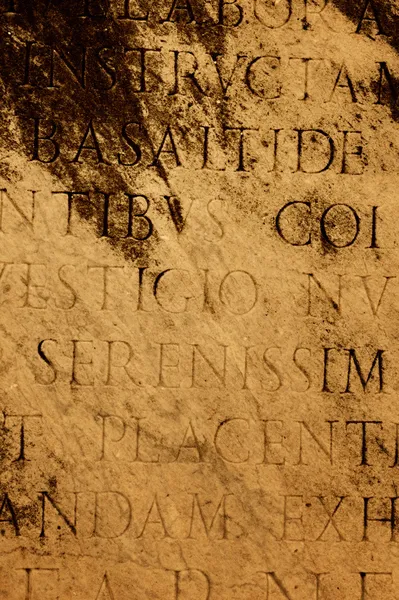 ELABORA
INSTRVCTAM
BASALTIDE
NTIBVS COI
VESTIGIO NV
SERENISSIM
T PLACENTI
ANDAM EXH